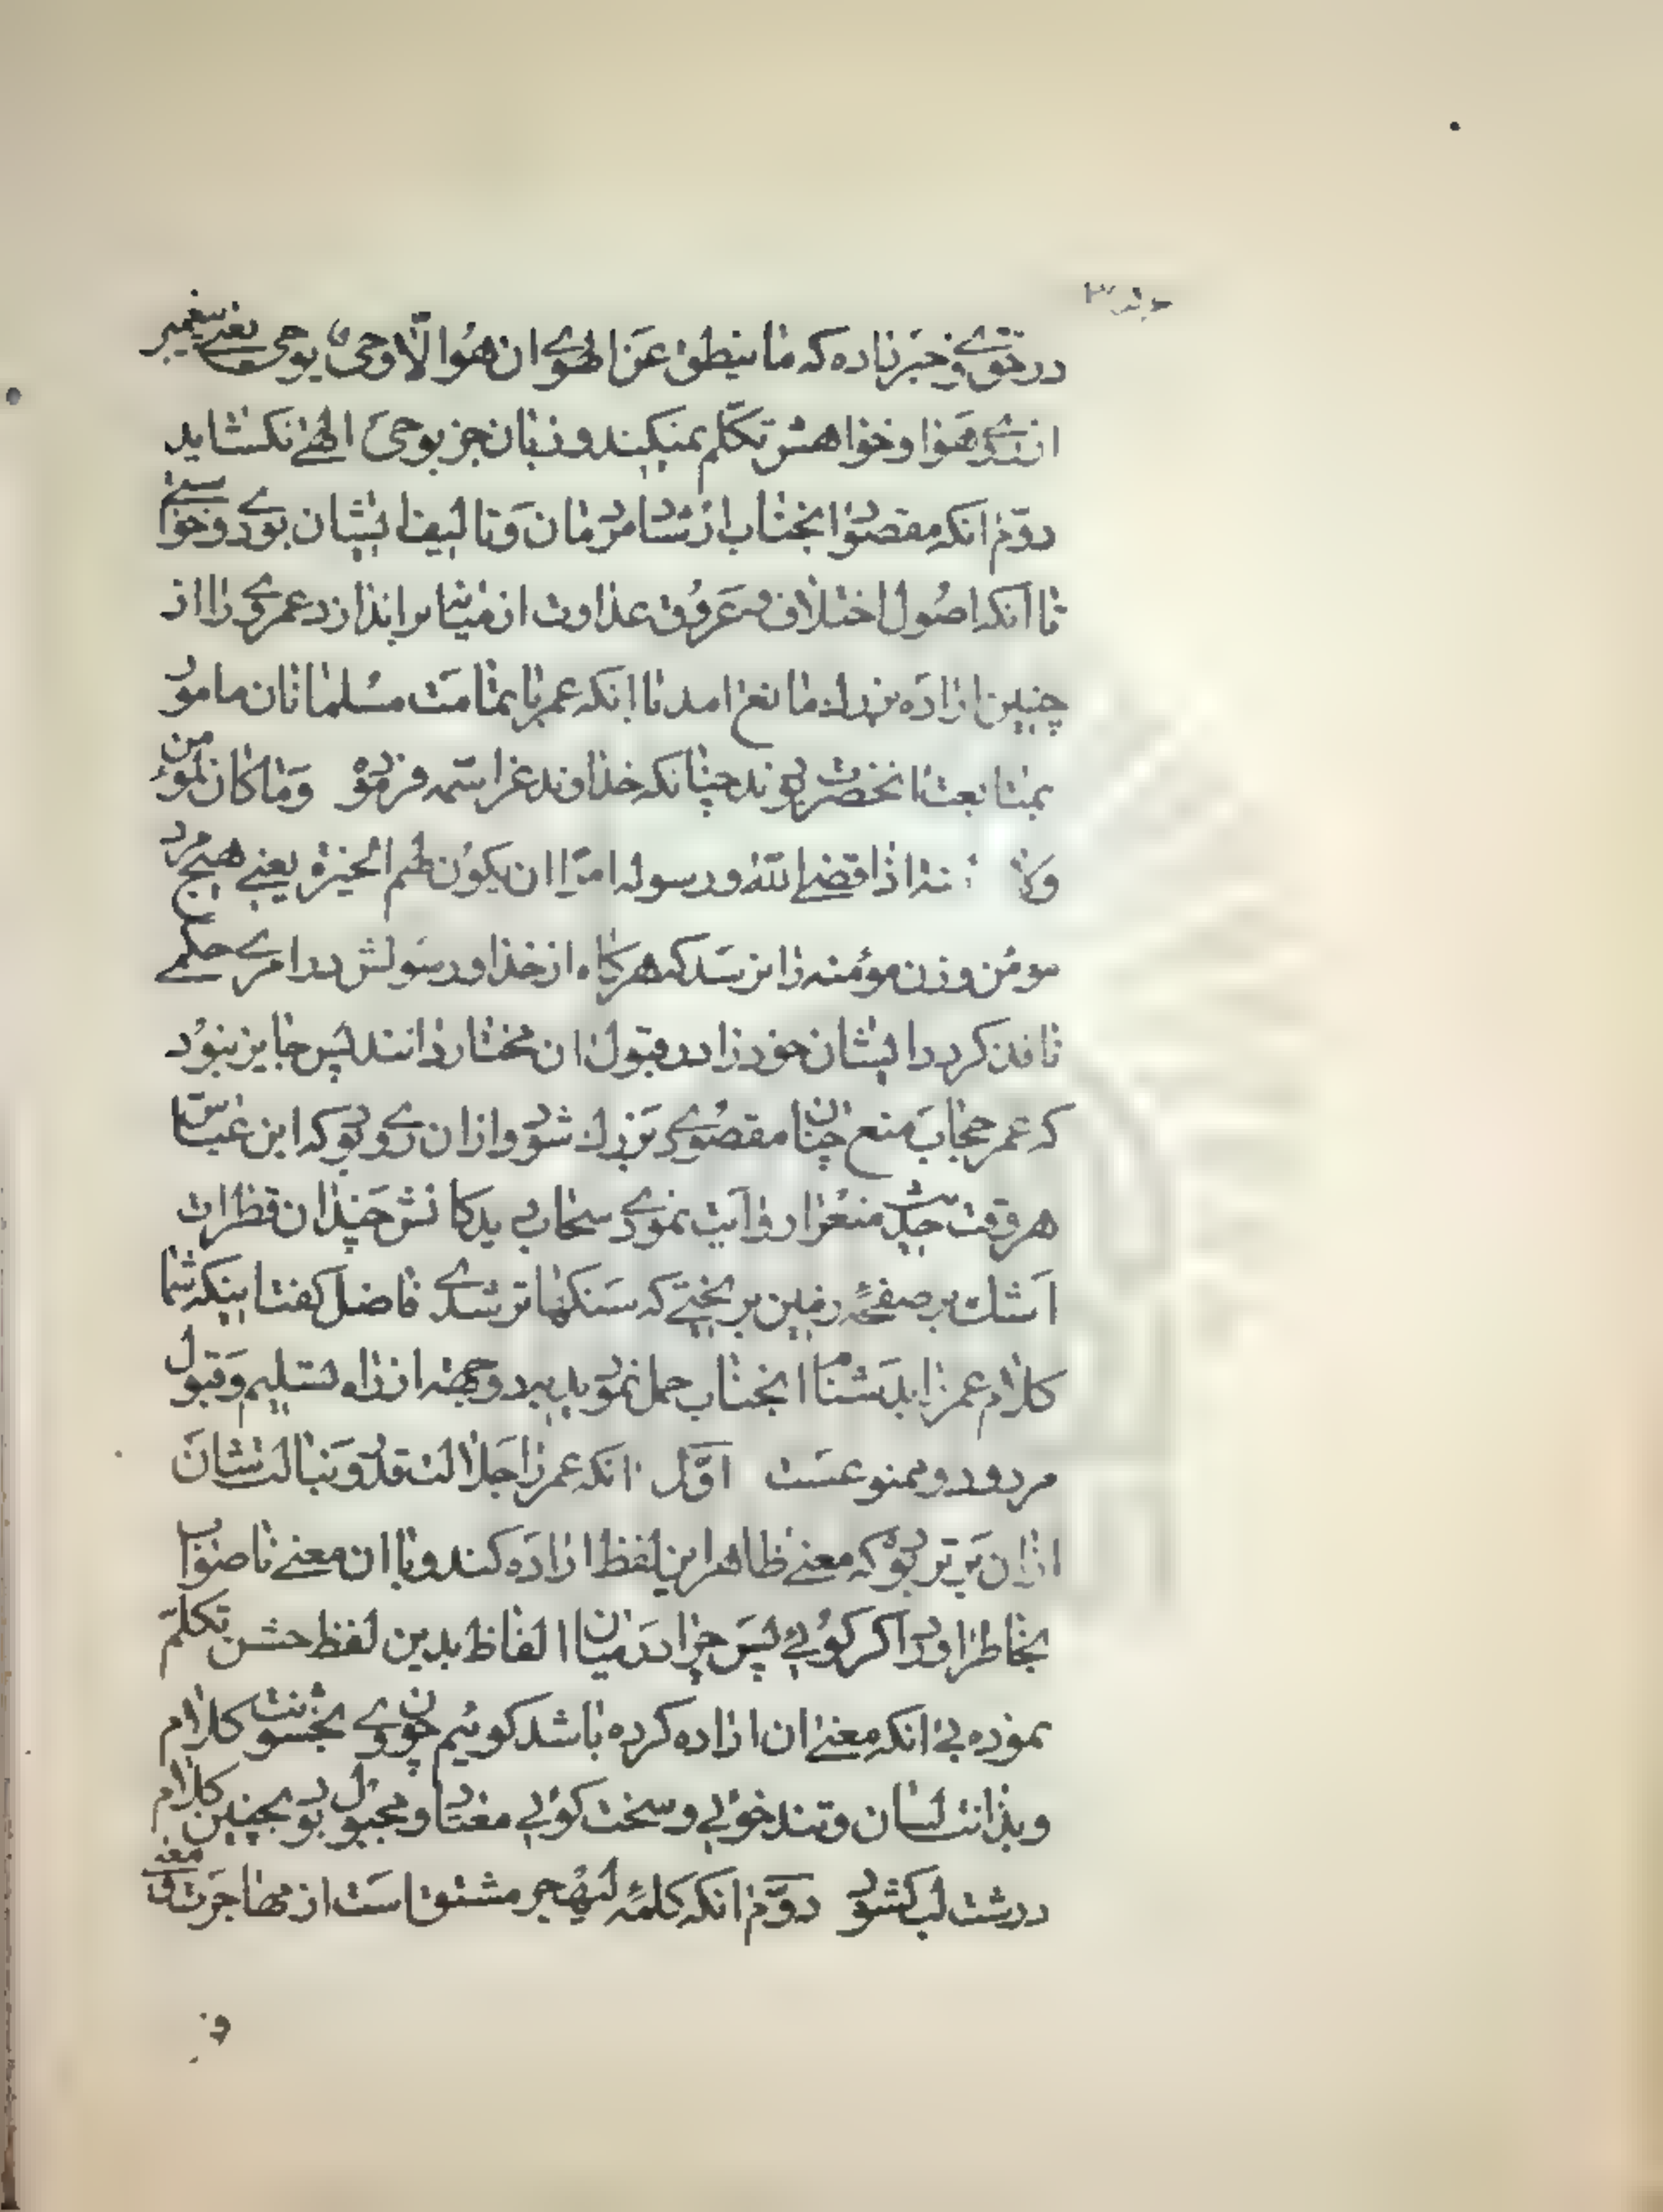 در حق وی خبر داده که ما ینطق عن الهوی ان هو الّا وحیٌ یوحی یعنی پیغمبر
از روی هوا و خواهش تکلّم نمیکند و زبان جز بوحی الهی نکشاید
دوّم انکه مقصود انجناب ارشاد مردمان و تالیف ایشان بودی و خواستی
تا آنکه اصول اختلاف و عروق عداوت از میانها براندازد عمر وی را از
چنین اراده بزرك مانع امد تا انکه عمر با تمامت مسلمانان مامور
بمتابعت انحضرت بودند چنانکه خداوند عز اسمه فرموده وما کان لمؤمن
ولا منة اذا قضی الله ورسوله امرًا ان یکون لهم الخیرة یعنی هیچ مرد
مومن وزن مؤمنه را نرسد که هرکاه از خدا و رسولش در امری حکمی
نافذ کردد ایشان خود را در قبول ان مختار دانند پس جایز نبود
که عمر حجاب منع چنان مقصودی بزرك شود و از ان روی بود که ابن عباس
هر وقت حدیث منع را روایت نمودی سحاب دیدکانش چندان قطرات
اشك بر صفحهٔ زمین بریختی که سنکها تر شدی فاضل کفت اینکه شما
کلام عمر را بدشنام انجناب حمل نمودید بدو جهة از راه تسلیم و قبول
مردود و ممنوعست اوّل انکه عمر را جلالت قدر و نبالت شان
از ان برتر بود که معنی ظاهر این لفظ اراده کند و یا ان معنی ناصواب
بخاطر اورد اکر کوئی پس چرا در میان الفاظ بدین لفظ خشن تکلّم
نموده بی انکه معنی ان اراده کرده باشد کوئیم چون وی بخشونت کلام
و بذائت لسان و تندخوئی و سخت کوئی معتاد و مجبول بود بچنین کلام
درشت لب کشود دوّم انکه کلمهٔ لیهجر مشتق است از مهاجرت
و